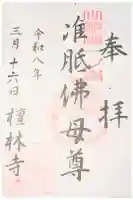 奉拝
准胝佛母尊
令和八年
三月十六日
檀林寺